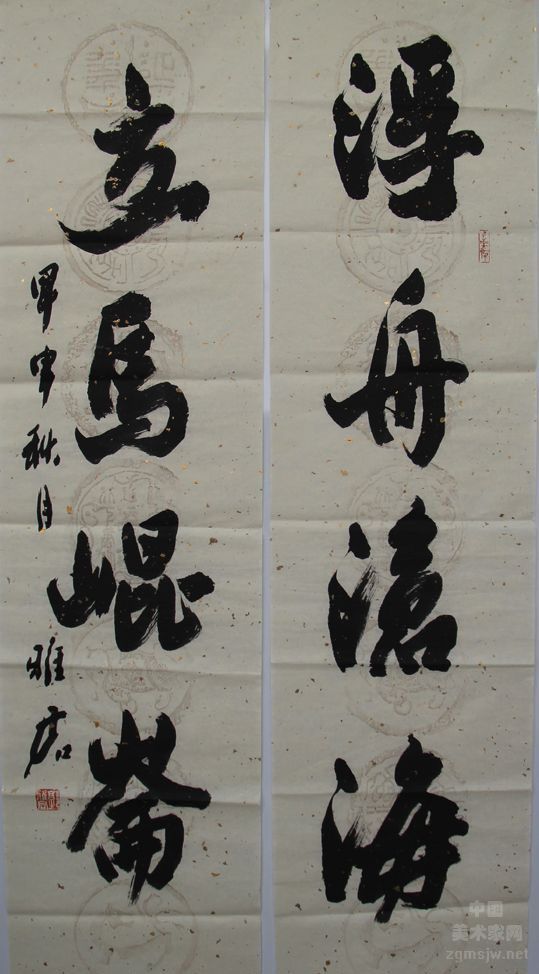 浮舟滄海
立馬崐崙
甲申秋月 雅君
中国
美术家网
zgmsjw.net